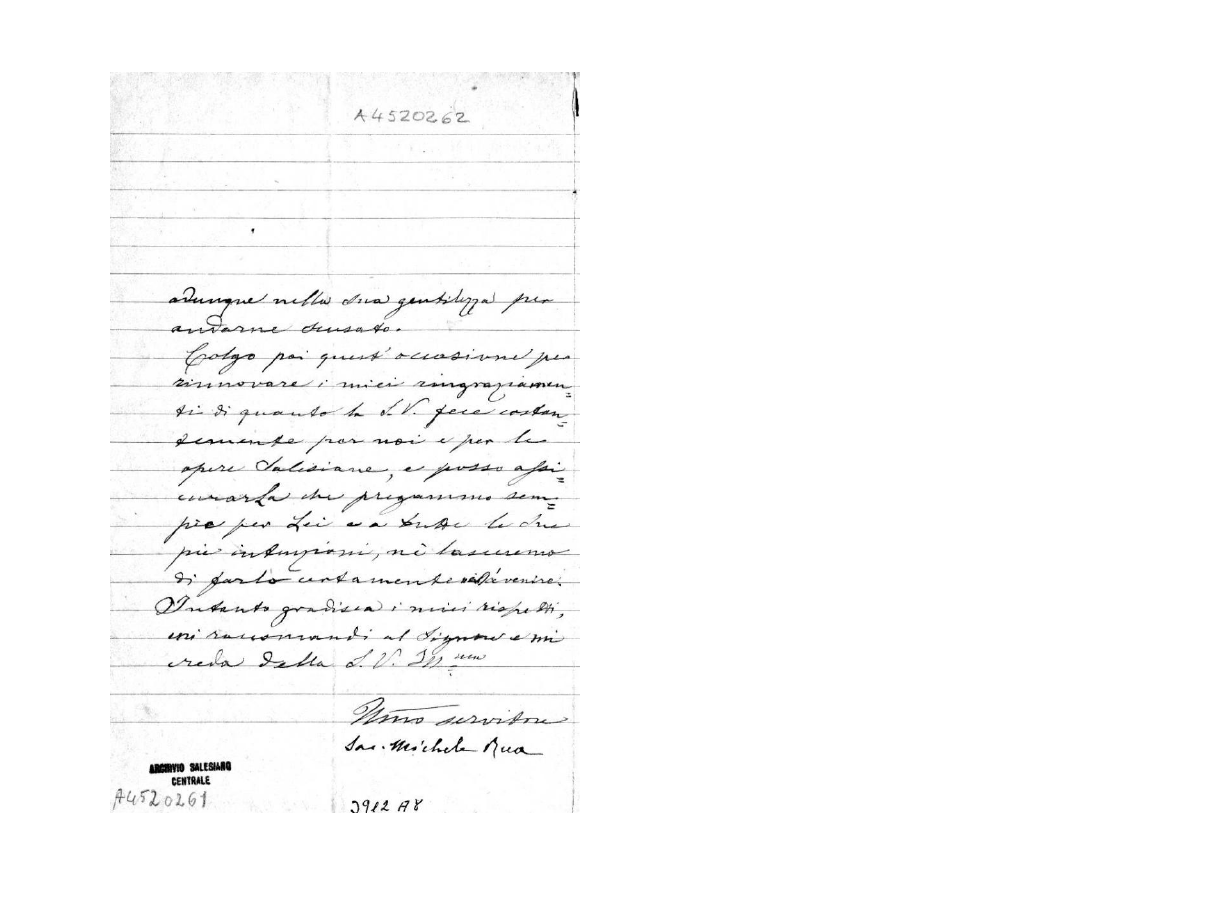 A4520262
adunque nella sua gentilezza per
andarne scusato.
Colgo poi quest'occasione per
rinnovare i miei ringraziamen=
ti di quanto la S.V. fece costan=
temente per noi e per le
opere Salesiane, e posso assi=
curarLa che pregammo sem=
pre per Lei e a tutte le Sue
pie intenzioni, nè lasceremo
di farlo certamente nell'avvenire.
Intanto gradisca i miei rispetti,
mi raccomandi al Signore e mi
creda della S.V. Ill.ma
Um̃o servitore
Sac. Michele Rua
ARCHIVIO SALESIANO
CENTRALE
A4520261
3912 A8